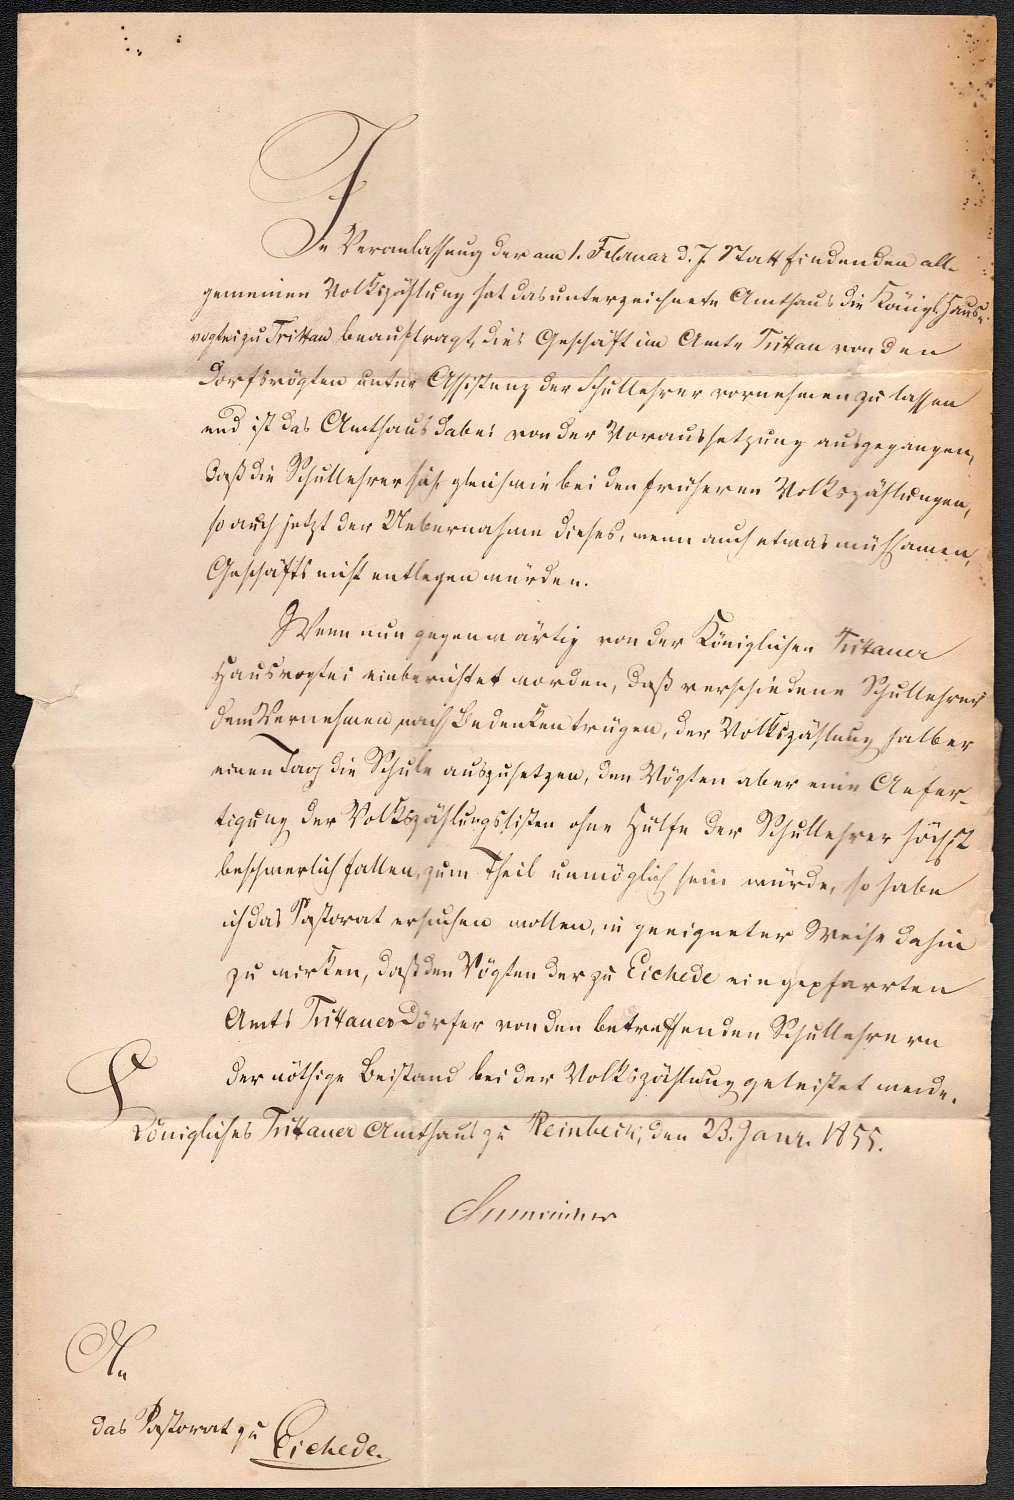 In Veranlassung der am 1. Februar d. J. Statt findenden all-
gemeinen Volkszählung hat das unterzeichnete Amthaus die Königl. Haus-
vogtei zu Trittau beauftragt, dies Geschäft im Amte Trittau von den
Dorfsvögten unter Assistenz der Schullehrer vornehmen zu lassen
und ist das Amthaus dabei von der Voraussetzung ausgegangen,
daß die Schullehrer sich gleich wie bei den früheren Volkszählungen,
so auch jetzt der Uebernahme dieses, wenn auch etwas mühsamen,
Geschäfts nicht entlegen würden.
Wenn nun gegenwärtig von der Königlichen Trittauer
Hausvogtei einberichtet worden, daß verschiedene Schullehrer
dem Vernehmen nach Bedenken trügen, der Volkszählung halber
einen Tag die Schule auszusetzen, den Vögten aber eine Anfer-
tigung der Volkszählungslisten ohne Hülfe der Schullehrer höchst
beschwerlich fallen, zum Theil unmöglich sein würde, so habe
ich das Pastorat ersuchen wollen, in geeigneter Weise dahin
zu wirken, daß den Vögten der zu Eichede eingepfarrten
Amts Trittauer Dörfer von den betreffenden Schullehrern
der nöthige Beistand bei der Volkszählung geleistet werde.
Königliches Trittauer Amthaus zu Reinbeck, den 23. Janr. 1855.
An
das Pastorat zu Eichede.